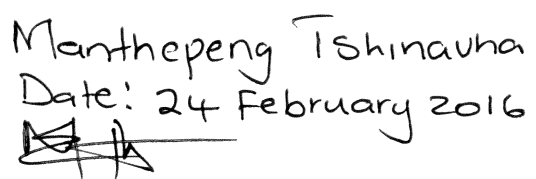 Manthepeng Tshinavha
Date: 24 February 2016